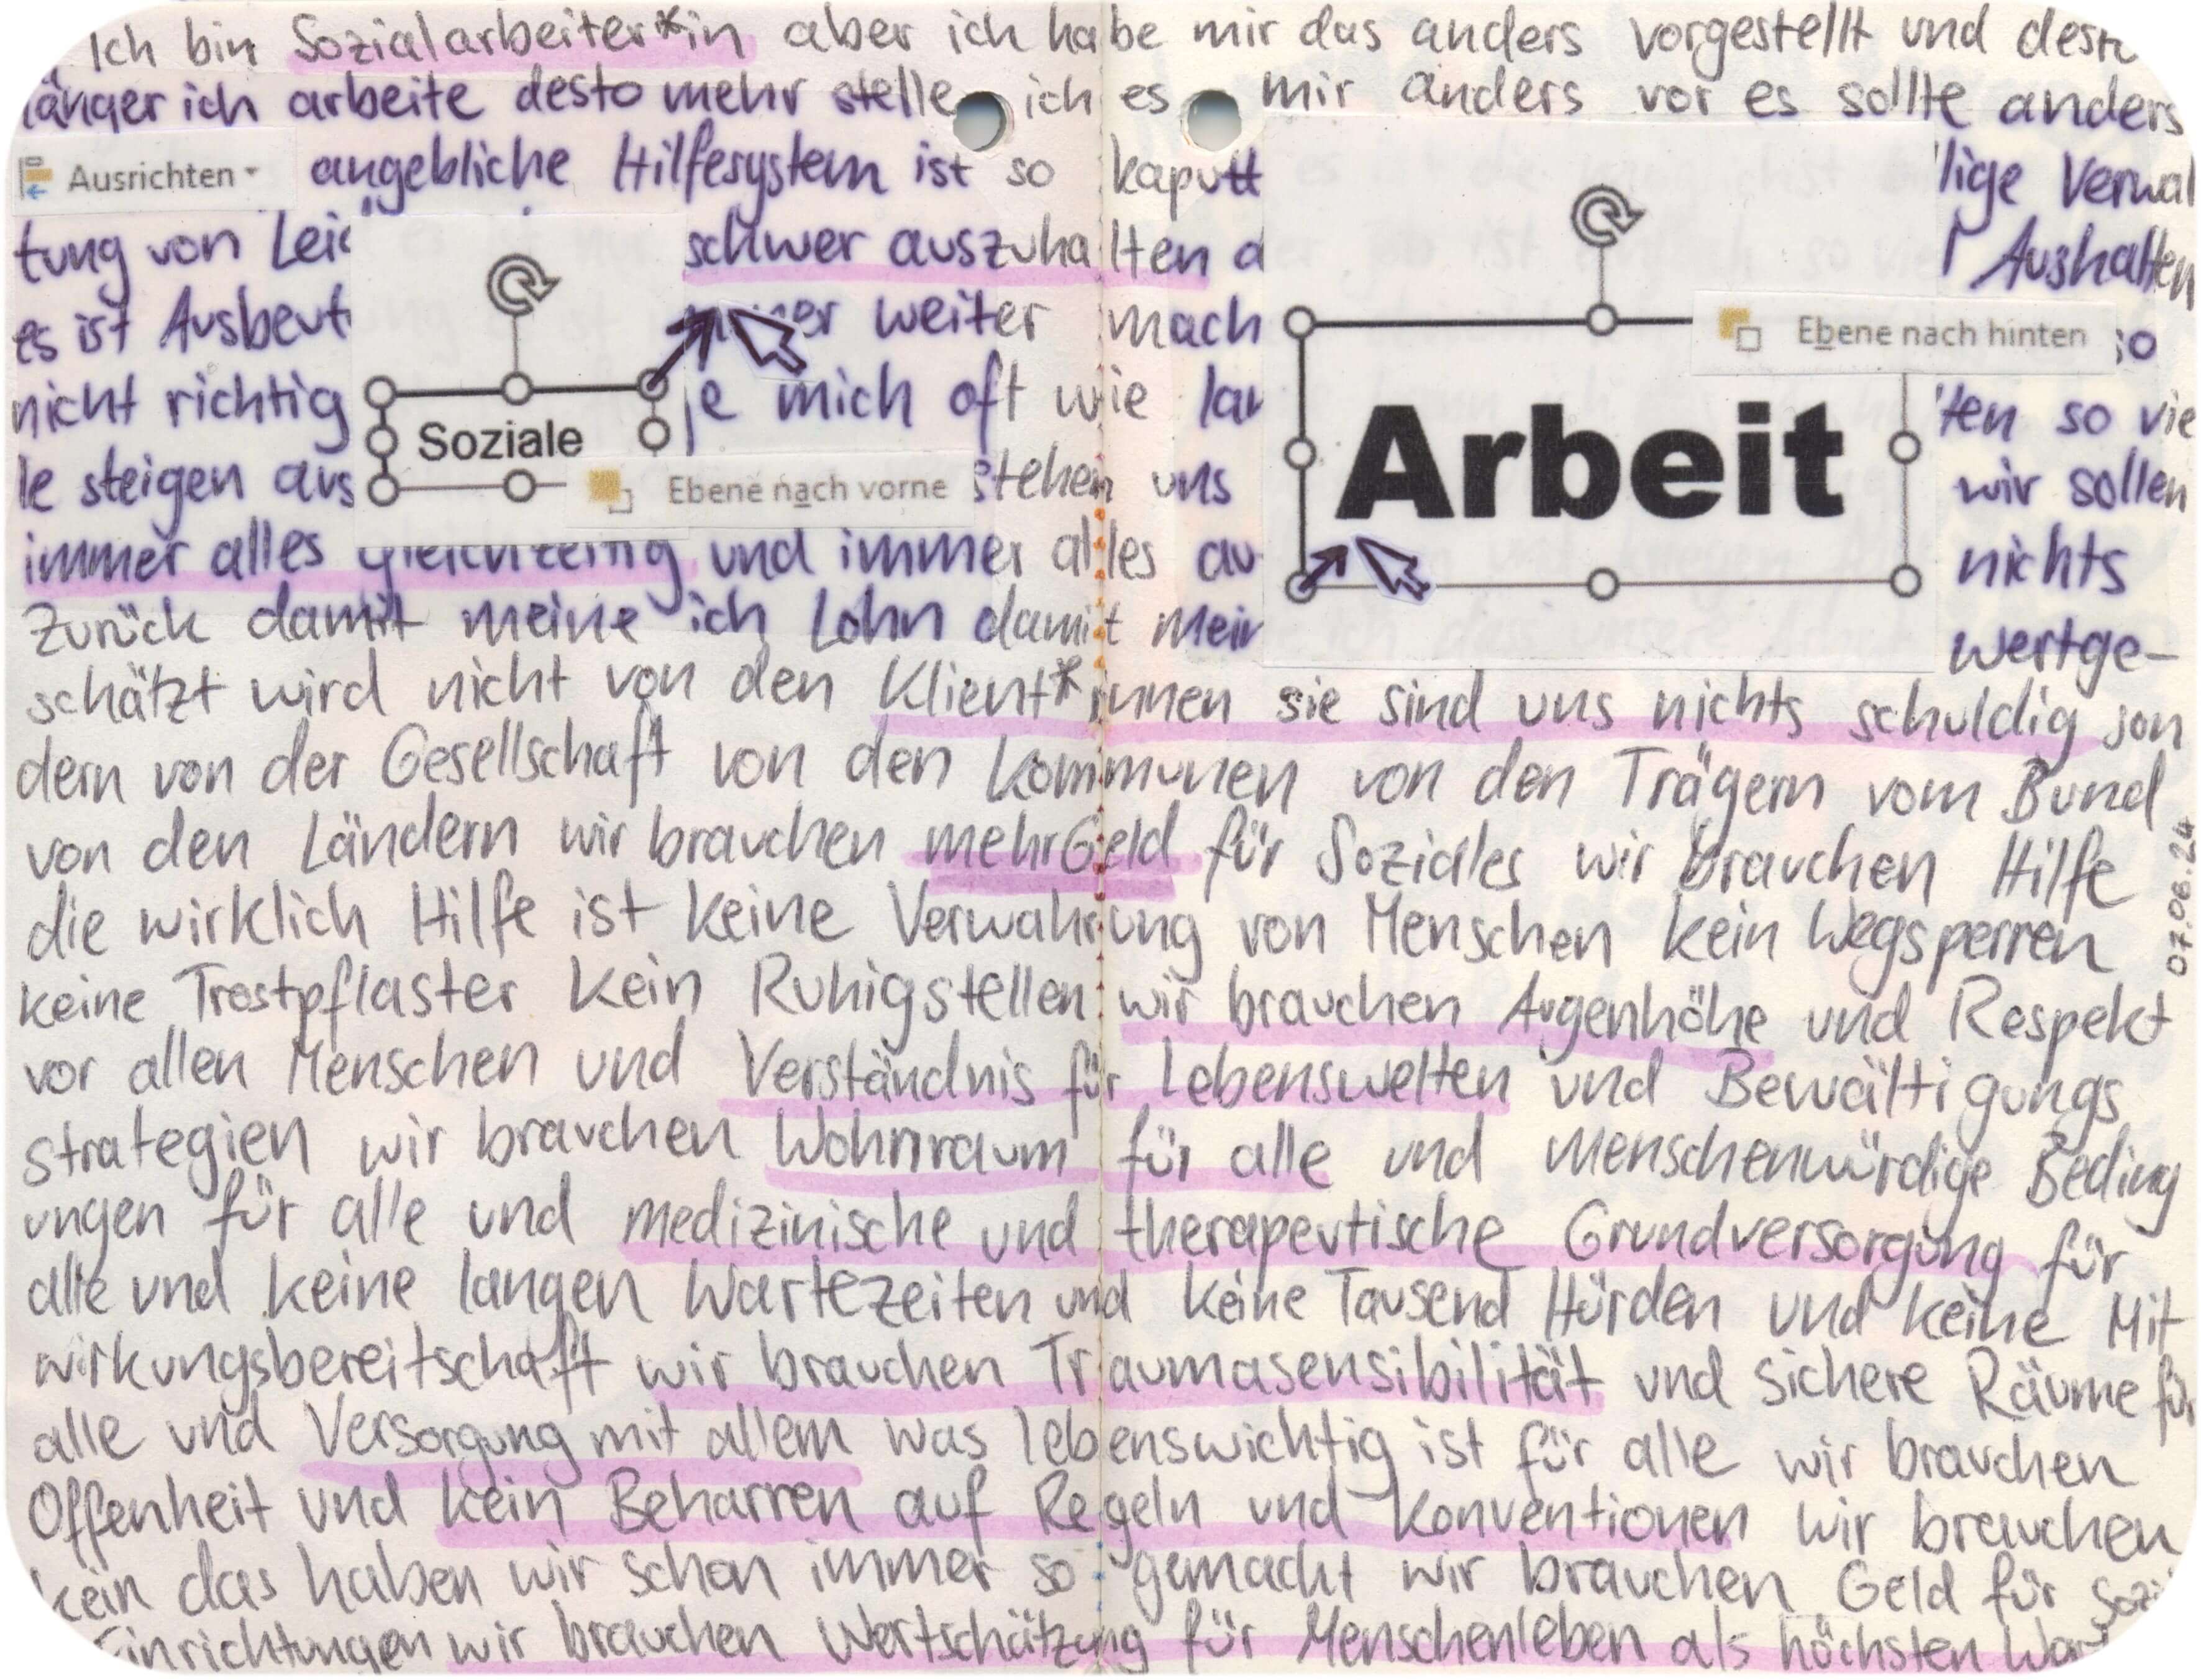 Ich bin Sozialarbeiter*in aber ich habe mir das anders vorgestellt und desto
länger ich arbeite desto mehr stelle ich es mir anders vor es sollte anders
Ausrichten angebliche Hilfesystem ist so kaputt lige Verwal
tung von Leid schwer auszuhalten d Aushalten
es ist Ausbeut immer weiter mach so
Ebene nach hinten
nicht richtig je mich oft wie lan ten so vie
Soziale
Arbeit
le steigen aus stehen uns wir sollen
Ebene nach vorne
immer alles gleichzeitig und immer alles au nichts
zurück damit meine ich Lohn damit mein wertge-
schätzt wird nicht von den Klient*innen sie sind uns nichts schuldig son
dern von der Gesellschaft von den Kommunen von den Trägern vom Bund
von den Ländern wir brauchen mehr Geld für Soziales wir brauchen Hilfe
die wirklich Hilfe ist keine Verwahrung von Menschen kein Wegsperren
keine Trostpflaster kein Ruhigstellen wir brauchen Augenhöhe und Respekt
vor allen Menschen und Verständnis für Lebenswelten und Bewältigungs
strategien wir brauchen Wohnraum für alle und menschenwürdige Beding
ungen für alle und medizinische und therapeutische Grundversorgung für
alle und keine langen Wartezeiten und keine Tausend Hürden und keine Mit
wirkungsbereitschaft wir brauchen Traumasensibilität und sichere Räume für
alle und Versorgung mit allem was lebenswichtig ist für alle wir brauchen
Offenheit und kein Beharren auf Regeln und Konventionen wir brauchen
kein das haben wir schon immer so gemacht wir brauchen Geld für Sozi
Einrichtungen wir brauchen Wertschätzung für Menschenleben als höchsten
07.06.24